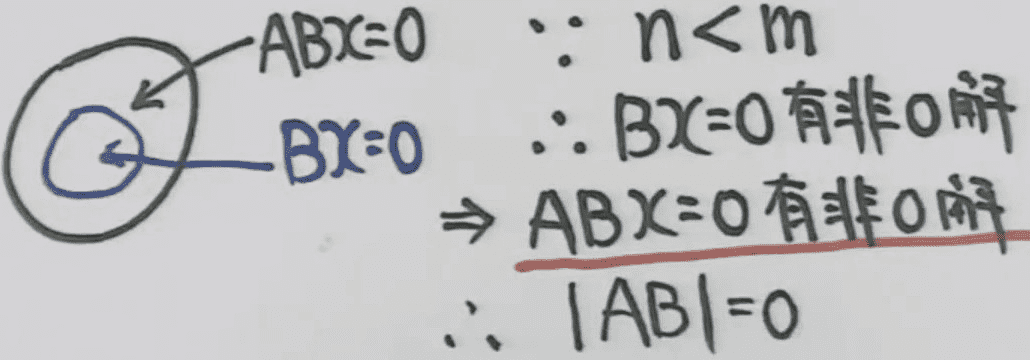 ABX=0
BX=0
∵ n<m
∴ BX=0有非0解
⇒ ABX=0有非0解
∴ |AB|=0